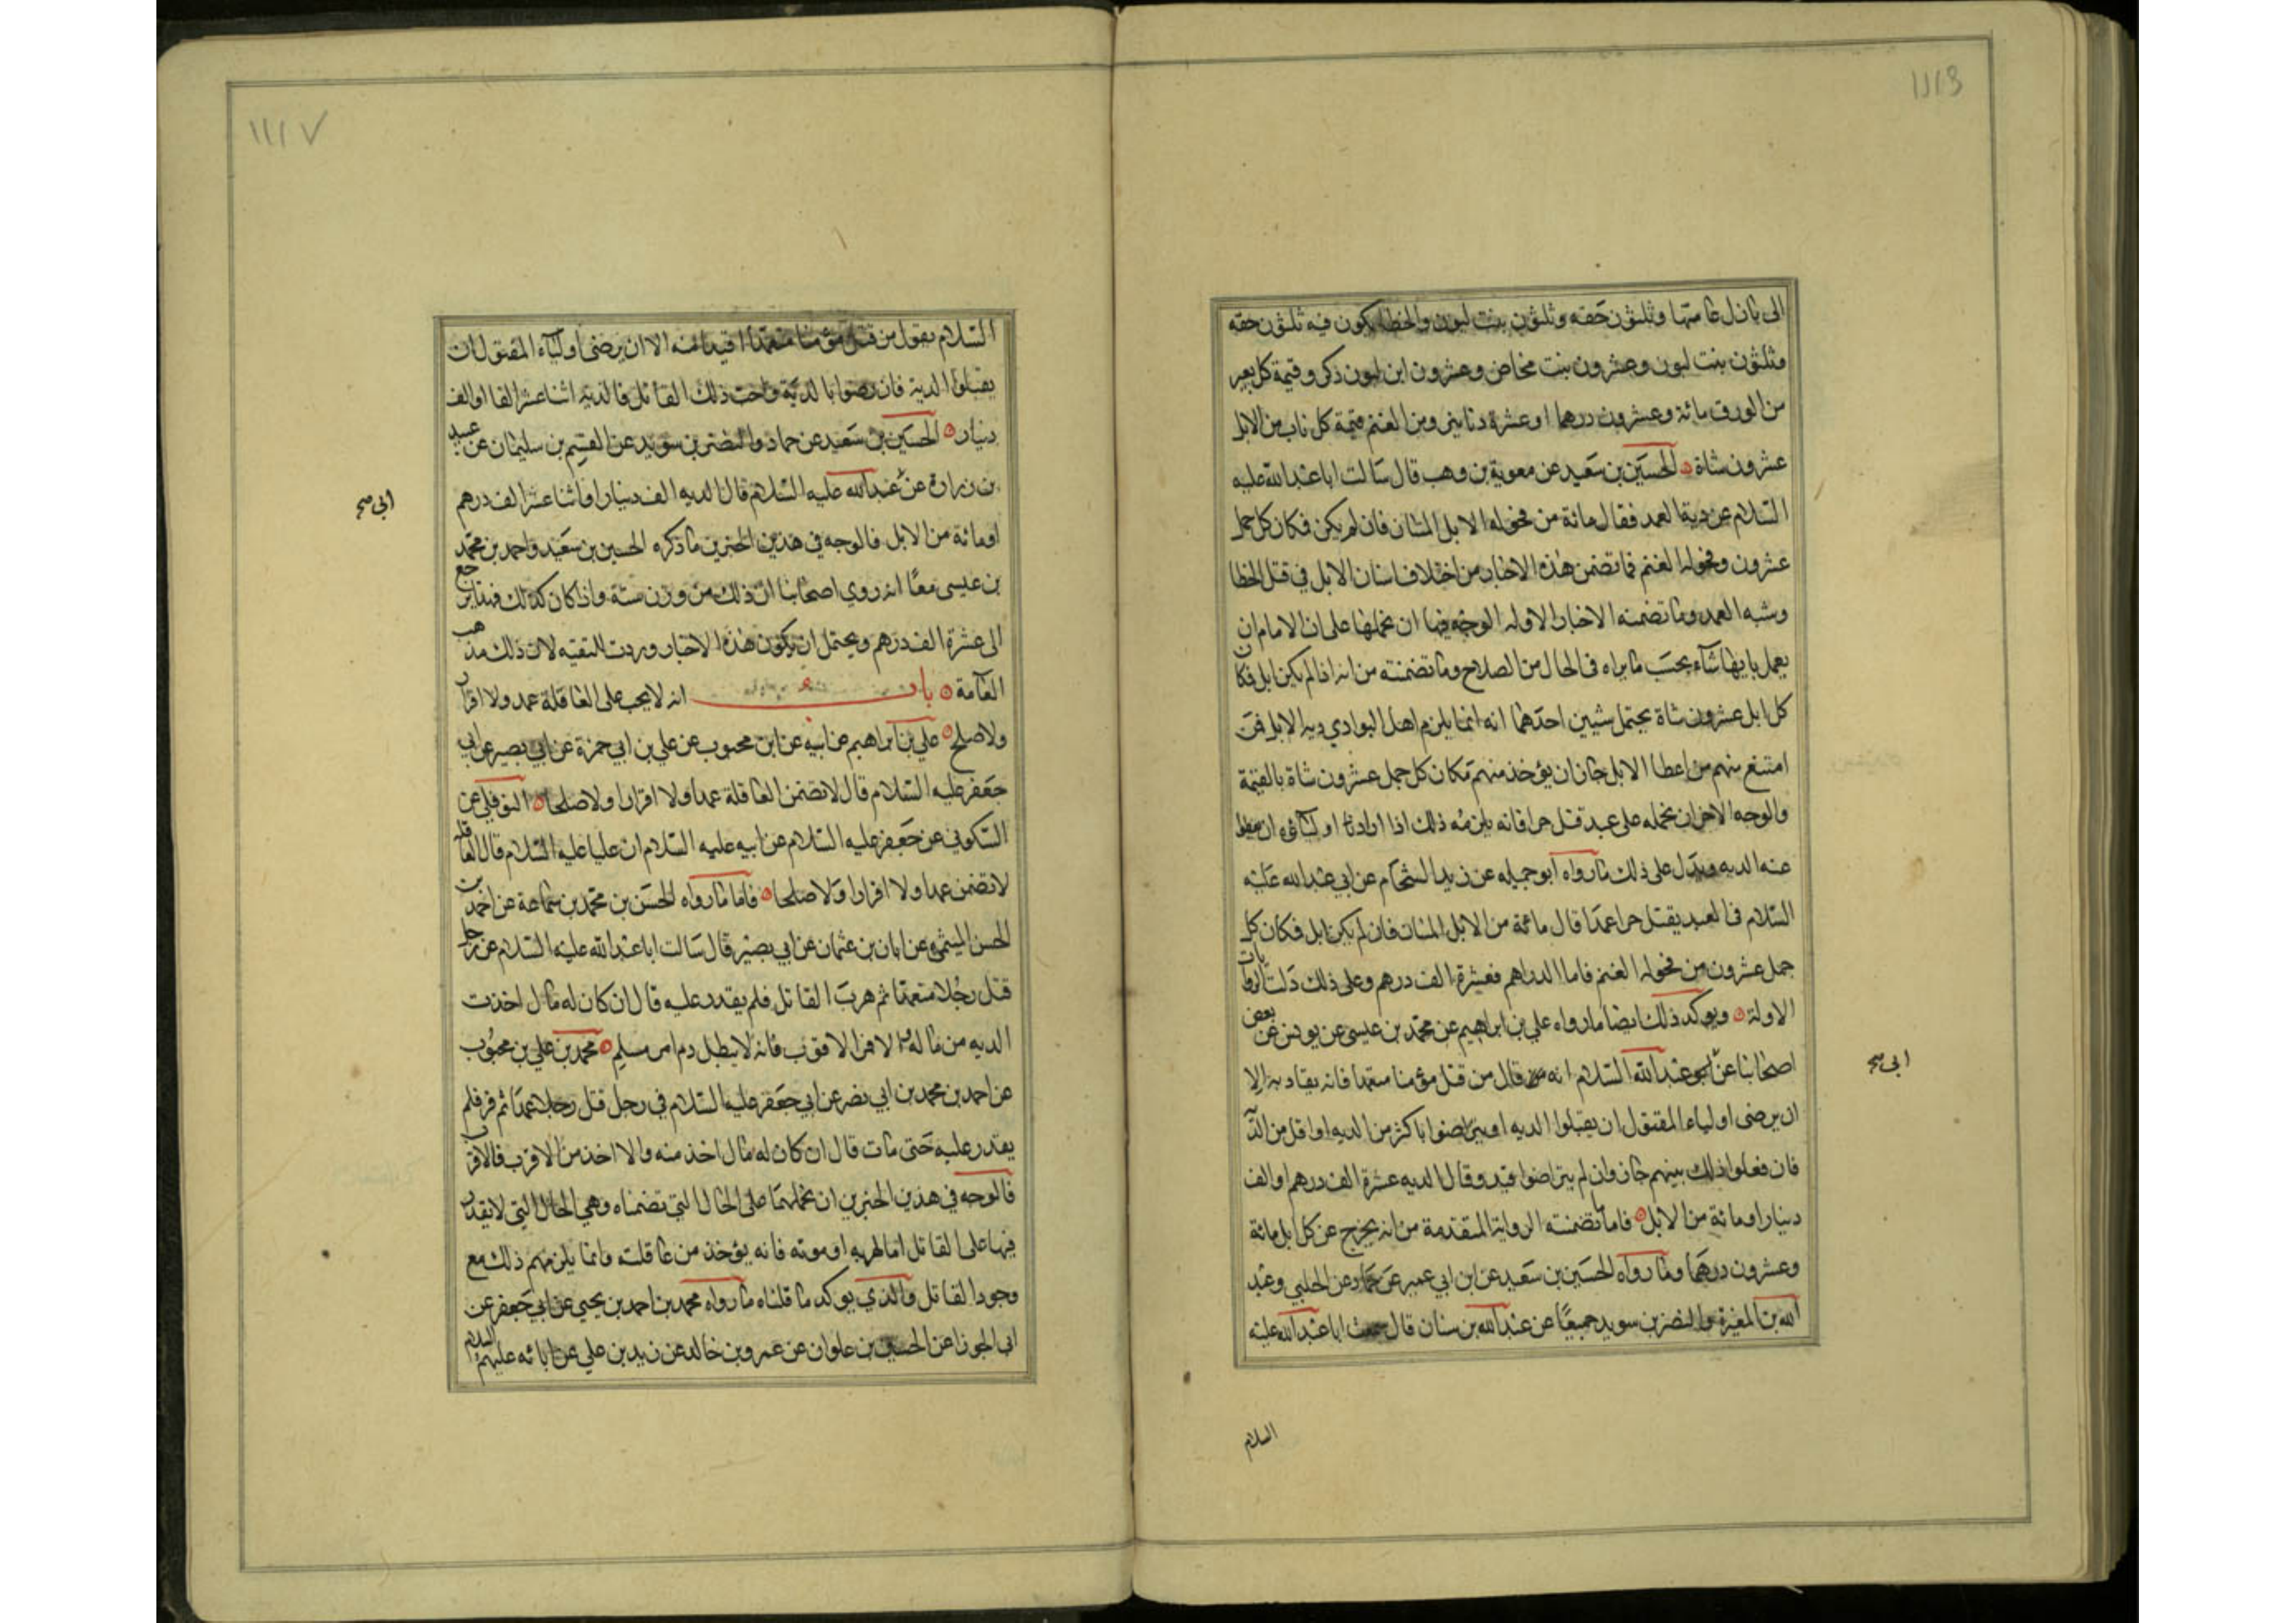 ١١١٦
الى بازل عامتها وثلثون حقه وثلثون بنت لبون والخطا يكون فيه ثلثون حقه
وثلثون بنت لبون وعشرون بنت مخاض وعشرون ابن لبون ذكر وقيمة كل بعير
من الورق مائة وعشرون درهما او عشرة دنانير ومن الغنم قيمة كل ناب من الابل
عشرون شاة الحسين بن سعيد عن معوية بن وهب قال سالت ابا عبد الله عليه
السلام عن دية العمد فقال مائة من فحوله الابل المسان فان لم يكن فكان كل جمل
عشرون من فحوله الغنم فما تضمن هذه الاخبار من اختلاف اسنان الابل في قتل الخطا
وشبه العمد وما تضمنه الاخبار الاوله الوجه فيها ان نحملها على ان الامام ان
يعمل بايها شآء بحسب ما يراه في الحال من الصلاح وما تضمنته من انه اذا لم يكن ابل فكان
كل ابل عشرون شاة يحتمل شيئين احدهما انه انما يلزم اهل البوادي ديه الابل فمن
امتنع منهم من اعطا الابل جاز ان يؤخذ منهم مكان كل جمل عشرون شاة بالقيمة
والوجه الاخر ان نحمله على عبد قتل حرا فانه يلزمه ذلك اذا اراد اوليائه ان
عنه الديه ويدل على ذلك ما رواه ابو جميله عن زيد الشحام عن ابي عبد الله عليه
السلام في العبد يقتل حرا عمدا قال مائة من الابل المسان فان لم يكن ابل فكان كل
جمل عشرون من فحوله الغنم فاما الدراهم فعشرة الف درهم وعلى ذلك دلت الروايات
الاولة ويوكد ذلك ايضا ما رواه علي بن ابراهيم عن محمد بن عيسى عن يونس عن بعض
اصحابنا عن عبد الله السلام انه قال من قتل مؤمنا متعمدا فانه يقاد به الا
ابى صح
ان يرضى اولياء المقتول ان يقبلوا الديه او يتراضوا باكثر من الديه او اقل من الد
فان فعلوا ذلك بينهم جاز وان لم يتراضوا قيد وقال الديه عشرة الف درهم او الف
دينار او مائة من الابل فاما ما تضمنته الرواية المتقدمة من انه يخرج عن كل ابل مائة
وعشرون درهما وما رواه الحسين بن سعيد عن ابن ابي عمير عن حماد عن الحلبي وعبد
الله بن المغيرة والنضر بن سويد جميعا عن عبد الله بن سنان قال سمعت ابا عبد الله عليه
السلام
١١١٧
السلام يقول من قتل مؤمنا متعمدا اقيد منه الا ان يرضى اوليآء المقتول ان
يقبلوا الدية فان رضوا بالدية واحب ذلك القاتل فالدية اثنا عشر الفا او الف
دينار الحسين بن سعيد عن حماد والنضر بن سويد عن القسم بن سليمان عن عبيد
بن زرارة عن عبد الله عليه السلام قال الديه الف دينار او اثنا عشر الف درهم
ابى صح
او مائة من الابل فالوجه في هذين الخبرين ما ذكره الحسين بن سعيد واحمد بن محمد
بن عيسى معا انه روي اصحابنا ان ذلك من وزن ستة واذا كان كذلك فهو يرجع
الى عشرة الف درهم ويحتمل ان يكون هذه الاخبار وردت للتقيه لان ذلك مذهب
العامة باب انه لا يجب على العاقلة عمد ولا اقرار
ولا صلح علي بن ابراهيم عن ابيه عن ابن محبوب عن علي بن ابي حمزة عن ابي بصير عن ابي
جعفر عليه السلام قال لا تضمن العاقلة عمدا ولا اقرارا ولا صلحا النوفلي عن
السكوني عن جعفر عليه السلام عن ابيه عليه السلام ان عليا عليه السلام قال العاقله
لا تضمن عمدا ولا اقرارا ولا صلحا فاما ما رواه الحسن بن محمد بن سماعة عن احمد بن
الحسن الميثمي عن ابان بن عثمان عن ابي بصير قال سالت ابا عبد الله عليه السلام عن رجل
قتل رجلا متعمدا ثم هرب القاتل فلم يقدر عليه قال ان كان له مال اخذت
الديه من ماله والا فمن الاقرب فانه لا يبطل دم امرء مسلم محمد بن علي بن محبوب
عن احمد بن محمد بن ابي نصر عن ابي جعفر عليه السلام في رجل قتل رجلا عمدا ثم فر فلم
يقدر عليه حتى مات قال ان كان له مال اخذ منه والا اخذ من الاقرب فالاقرب
فالوجه في هذين الخبرين ان نحملهما على الحال التي تضمناه وهي الحال التي لا يقدر
فيها على القاتل اما لهربه او موته فانه يؤخذ من عاقلته وانما يلزمهم ذلك مع
وجود القاتل والذي يوكد ما قلناه ما رواه محمد بن احمد بن يحيى عن ابي جعفر عن
ابي الجوزا عن الحسين بن علوان عن عمرو بن خالد عن زيد بن علي عن ابائه عليهم السلام